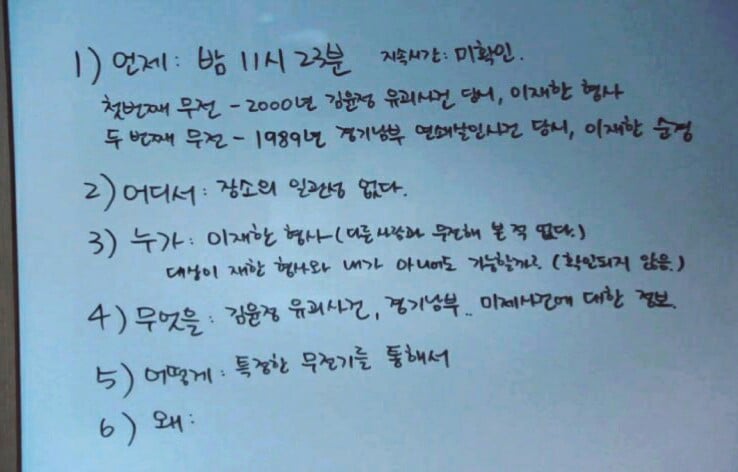 1) 언제: 밤 11시 23분 지속시간: 미확인.
첫번째 무전 - 2000년 김윤정 유괴사건 당시, 이재한 형사
두 번째 무전 - 1989년 경기남부 연쇄살인사건 당시, 이재한 순경
2) 어디서: 장소의 일관성 없다.
3) 누가: 이재한 형사 (다른사람과 무전해 본 적 없다.)
대상이 재한 형사와 내가 아니어도 가능할까? (확인되지 않음.)
4) 무엇을: 김윤정 유괴사건, 경기남부.. 미제사건에 대한 정보.
5) 어떻게: 특정한 무전기를 통해서
6) 왜: